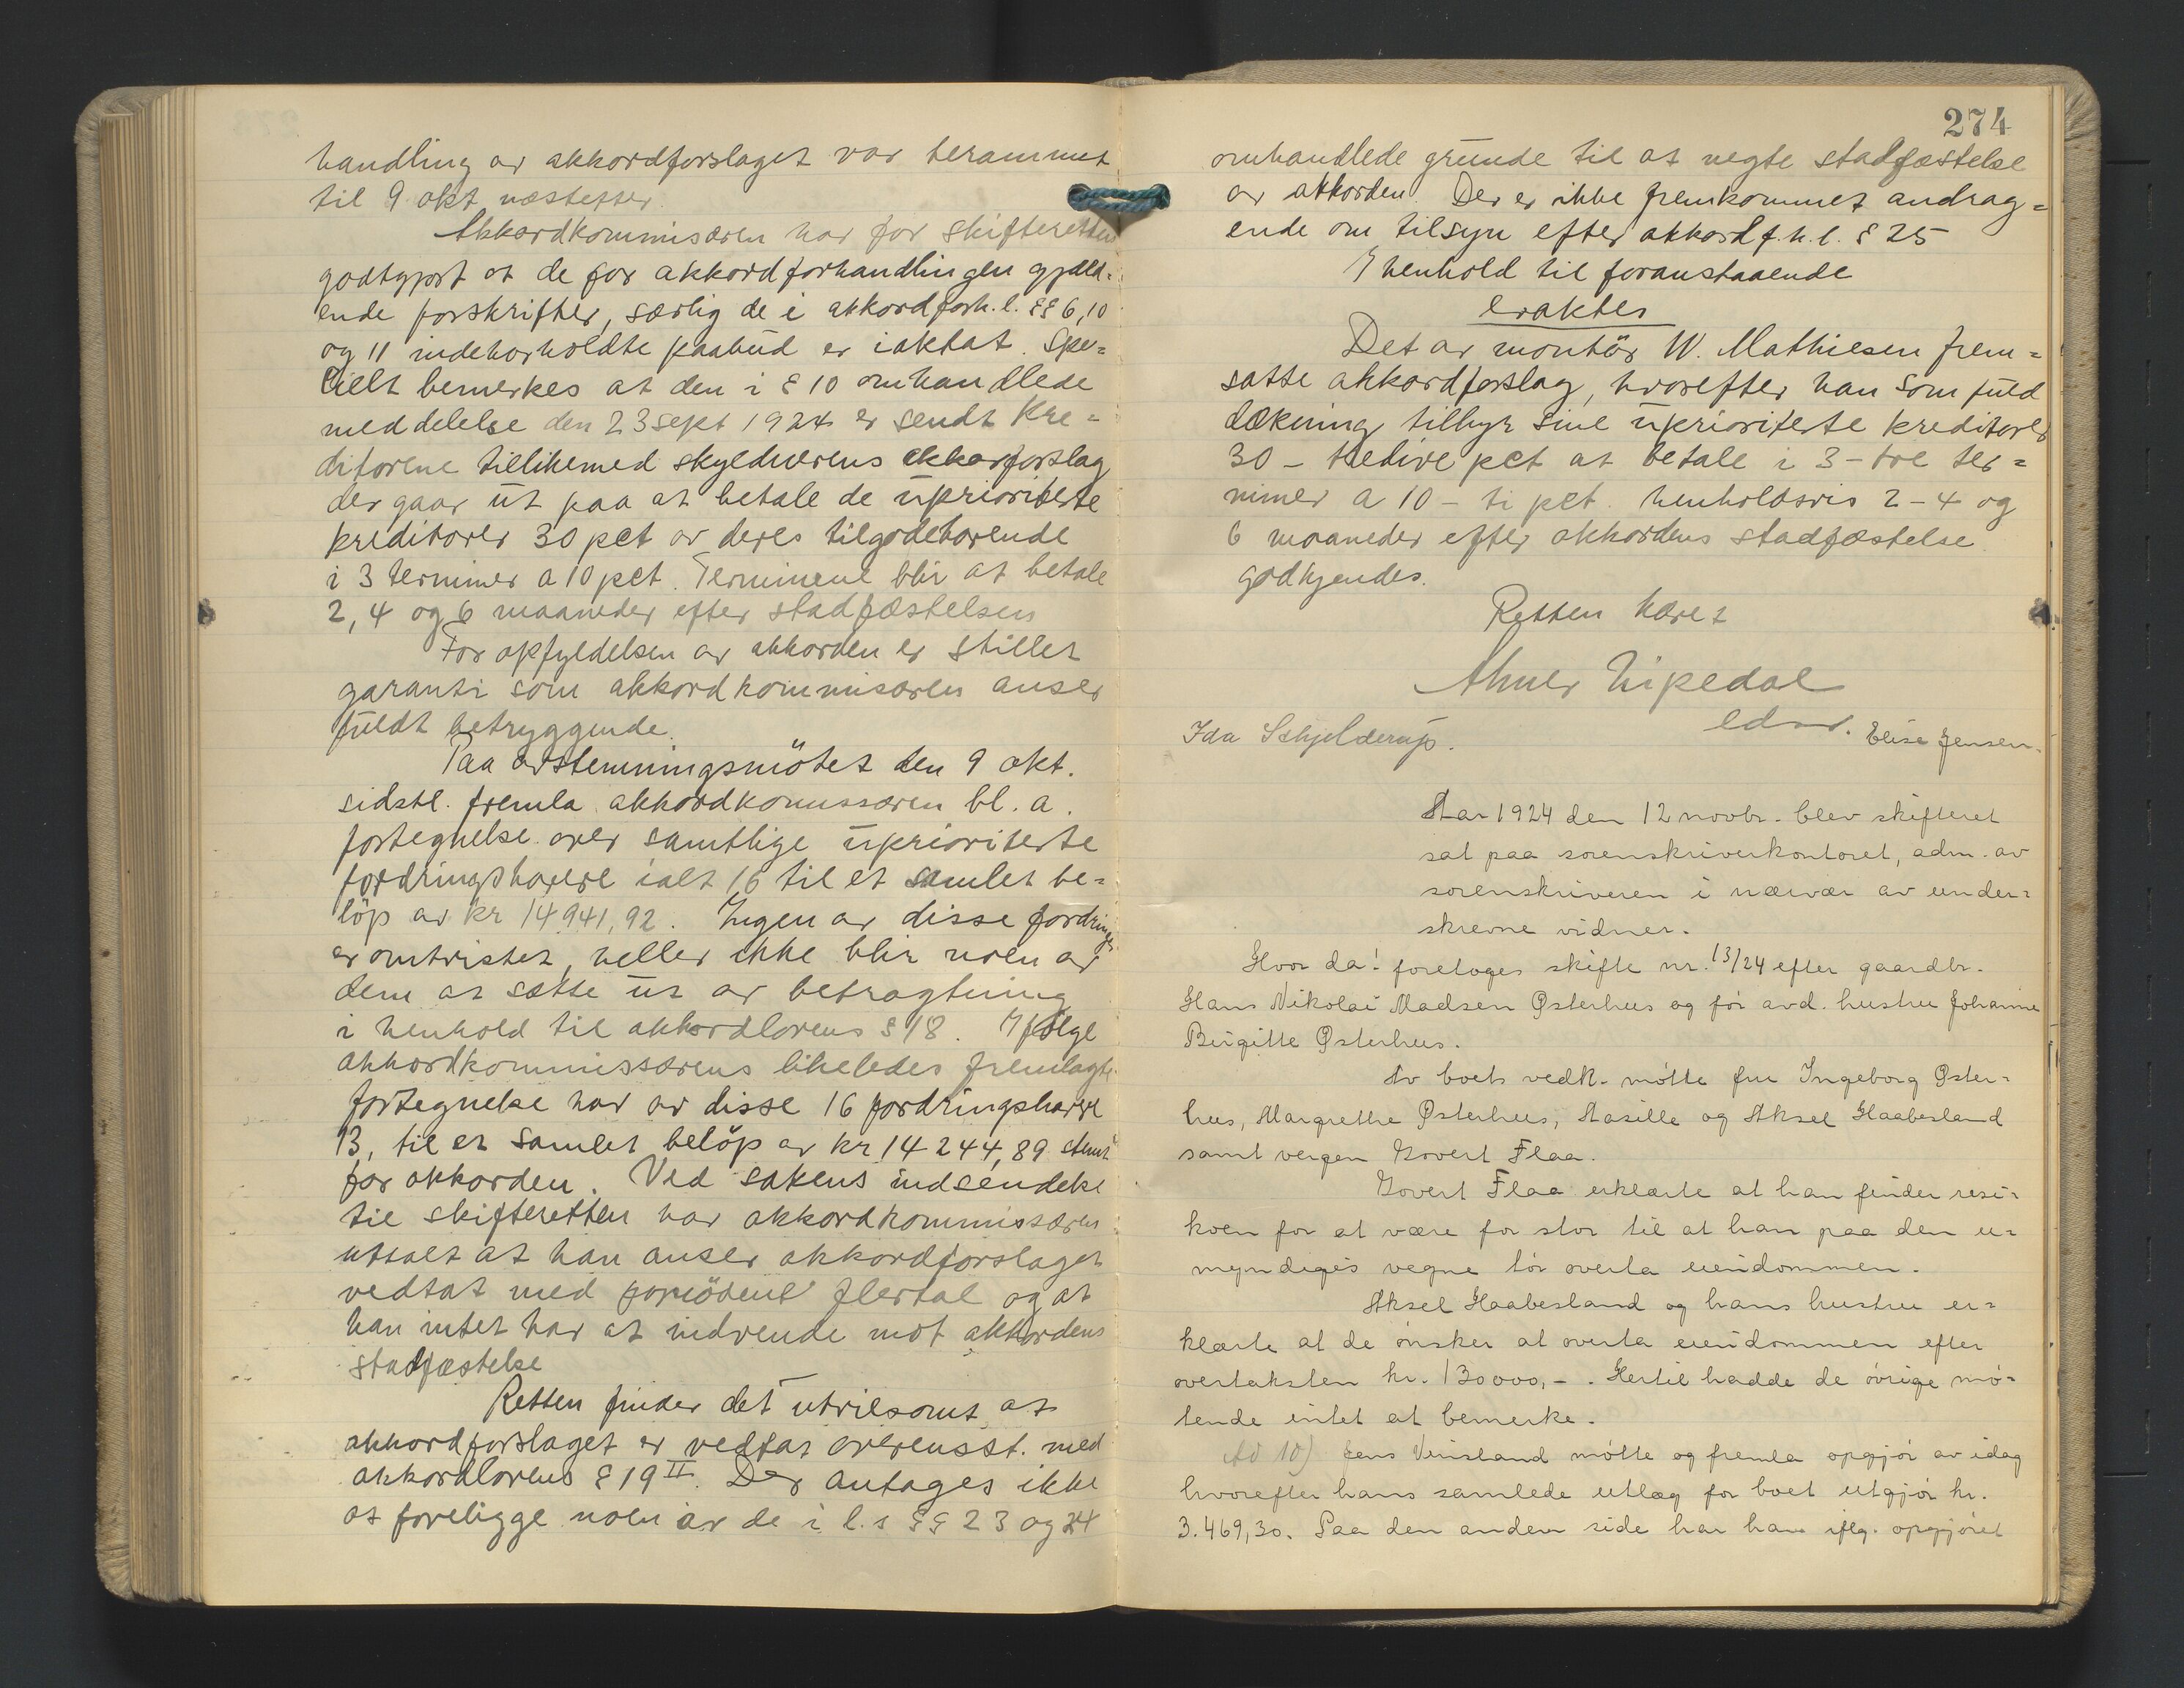 handling av akkordforslaget var berammet
til 9 okt næstefter.
Akkordkommisæren har for skifteretten
godtgjort at de for akkordforhandlingen gjæld=
ende forskrifter, særlig de i akkordforh. l. §§ 6, 10
og 11 indehorholdte paabud er iaktat. Spe=
cielt bemerkes at den i § 10 omhandlede
meddelelse den 23 sept 1924 er sendt kre=
ditorene tillikemed skyldnerens akkorforslag
der gaar ut paa at betale de upriorterte
kreditorer 30 pct av deres tilgodehavende
i 3 terminer a 10 pct. Terminene blir at betale
2, 4 og 6 maaneder efter stadfæstelsen
For opfyldelsen av akkorden er stillet
garanti som akkordkommisæren anser
fuldt betryggende.
Paa avstemningsmötet den 9 okt.
sidstl. fremla akkordkomissæren bl. a.
fortegnelse over samtlige upriorterte
fordringshavere ialt 16 til et samlet be=
löp av kr 14941,92. Ingen av disse fordringer
er omtvistet, heller ikke blir noen av
dem at sætte ut av betragtning
i henhold til akkordlovens § 18. Ifölge
akkordkommissærens likeledes fremlagte
fortegnelse har av disse 16 fordringshavere
13, til et samlet belöp av kr 14244,89 stemt
for akkorden. Ved sakens indsendelse
til skifteretten har akkordkommissæren
uttalt at han anser akkordforslaget
vedtat med fornödent flertal og at
han intet har at indvende mot akkordens
stadfæstelse
Retten finder det utvilsomt at
akkordforslaget er vedtat overensst. med
akkordlovens § 19 II. Der antages ikke
at foreligge noen av de i l.s §§ 23 og 24
274
omhandlede grunde til at negte stadfæstelse
av akkorden. Der er ikke fremkommet andrag=
ende om tilsyn efter akkordf.h.l. § 25
I henhold til foranstaaende
eraktes
Det av montör W. Mathiesen frem=
satte akkordforslag, hvorefter han som fuld
dækning tilbyr sine upriorterte kreditorer
30 – tredive pct at betale i 3 – tre ter=
miner a 10 – ti pct. henholdsvis 2 – 4 og
6 maaneder efter akkordens stadfæstelse
godkjendes.
Retten hævet
Abner Lipedal
edsv.
Ida Schjelderup.
Elise Jensen.
Aar 1924 den 12 novbr. blev skifteret
sat paa sorenskriverkontoret, adm. av
sorenskriveren i nærvær av under=
skrevne vidner.
Hvor da! foretoges skifte nr. 13/24 efter gaardbr.
Hans Nikolai Madsen Østerhus og før avd. hustru Johanne
Birgitte Østerhus.
Av boets vedk. møtte fru Ingeborg Øster=
hus, Margrethe Østerhus, Aasille og Aksel Haabesland
samt vergen Govert Flaa.
Govert Flaa erklærte at han finder resi=
koen for at være for stor til at han paa den u=
myndiges vegne tør overta eiendommen.
Aksel Haabesland og hans hustru er=
klærte at de ønsker at overta eiendommen efter
overtaksten kr. 13000,-. Hertil hadde de øvrige mø=
tende intet at bemerke.
Ad 10) Jens Veisland møtte og fremla opgjør av idag
hvorefter hans samlede utlæg for boet utgjør kr.
3.469,30. Paa den anden side har han iflg. opgjøret